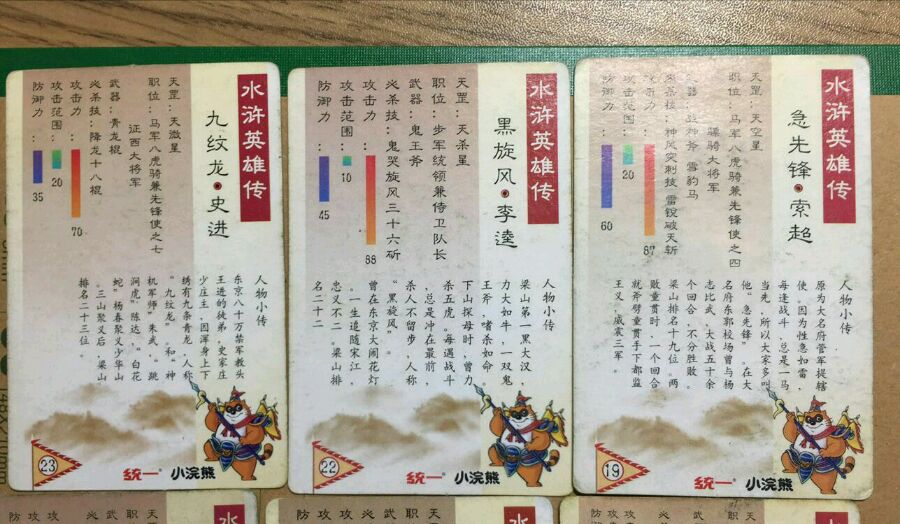 水浒英雄传
九纹龙·史进
天罡：天微星
职位：马军八虎骑兼先锋使之七
证西大将军
武器：青龙棍
必杀技：降龙十八棍
攻击力：
70
攻击范围：
20
防御力：
35
人物小传
东京八十万禁军教头
王进的徒弟，史家庄
少庄主，因浑身上下
绣有九条青龙，人称
“九纹龙”和“神
机军师”朱武，跳
涧虎”陈达，“白花
蛇”杨春聚义少华山
。三山聚义后，梁山
排名二十三位。
23
统一
小浣熊
水浒英雄传
黑旋风·李逵
天罡：天杀星
职位：步军统领兼侍卫队长
武器：鬼王斧
必杀技：鬼哭旋风三十六斫
攻击力：
88
攻击范围：
10
防御力：
45
人物小传
梁山第一黑大汉，
力大如牛，一双鬼
王斧，嗜杀如命，
下山探母时，曾力
杀五虎。每遇战斗
，总是冲在最前，
杀人不留步，人称
“黑旋风”。
曾在东京大闹花灯
。一生追随宋江，
忠义不二。梁山排
名二十二
22
统一
小浣熊
水浒英雄传
急先锋·索超
天罡：天空星
职位：马军八虎骑兼先锋使之四
骠骑大将军
战神斧 雪豹马
必杀技：神风突刺技 雷锐破天斩
攻击力：
87
攻击范围：
20
防御力：
60
人物小传
原为大名府管军提辖
使。因为性急如雷，
每逢战斗，总是一马
当先，所以大家多叫
他“急先锋”。在大
名府东郭校场曾与杨
志比武，大战五十余
个回合，不分胜败。
梁山排名十九位。两
败童贯时，一个回合
就斧劈童贯手下都监
王义，威震三军。
19
统一
小浣熊
水
天
职
武
必
攻
攻
防
水
天
职
武
必
攻
攻
防
水
天
职